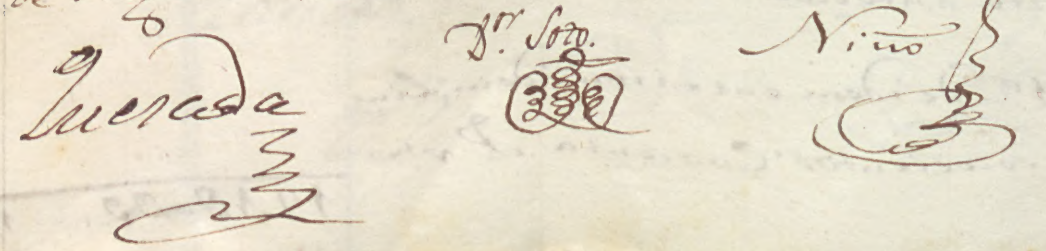 Quesada
D.ʳ Soto.
Niño